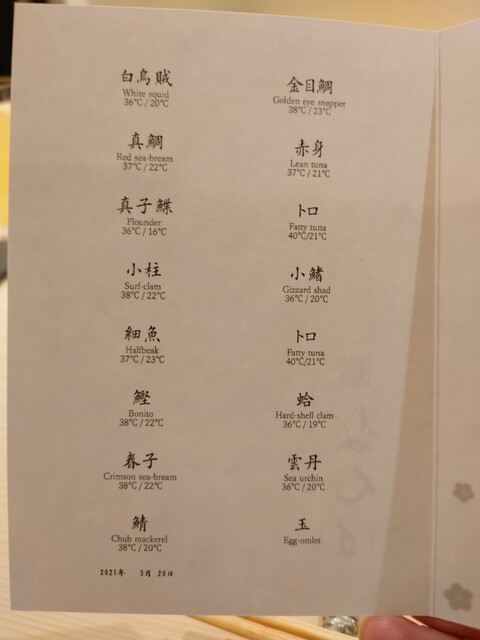 白烏賊
White squid
36℃ / 20℃
真鯛
Red sea-bream
37℃ / 22℃
真子鰈
Flounder
36℃ / 16℃
小柱
Surf-clam
38℃ / 22℃
細魚
Halfbeak
37℃ / 23℃
鰹
Bonito
38℃ / 22℃
春子
Crimson sea-bream
38℃ / 22℃
鯖
Chub mackerel
38℃ / 20℃
2021年 5月 20日
金目鯛
Golden eye snapper
38℃ / 23℃
赤身
Lean tuna
37℃ / 21℃
トロ
Fatty tuna
40℃/21℃
小鰭
Gizzard shad
36℃ / 20℃
トロ
Fatty tuna
40℃/21℃
蛤
Hard-shell clam
36℃ / 19℃
雲丹
Sea urchin
36℃ / 20℃
玉
Egg-omlet